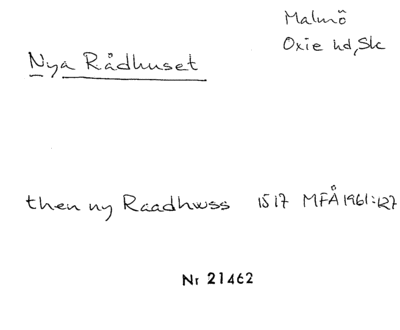 Malmö
Oxie hd, Sk
Nya Rådhuset
then ny Raadhwss 1517 MFÅ 1961:127
Nr 21462